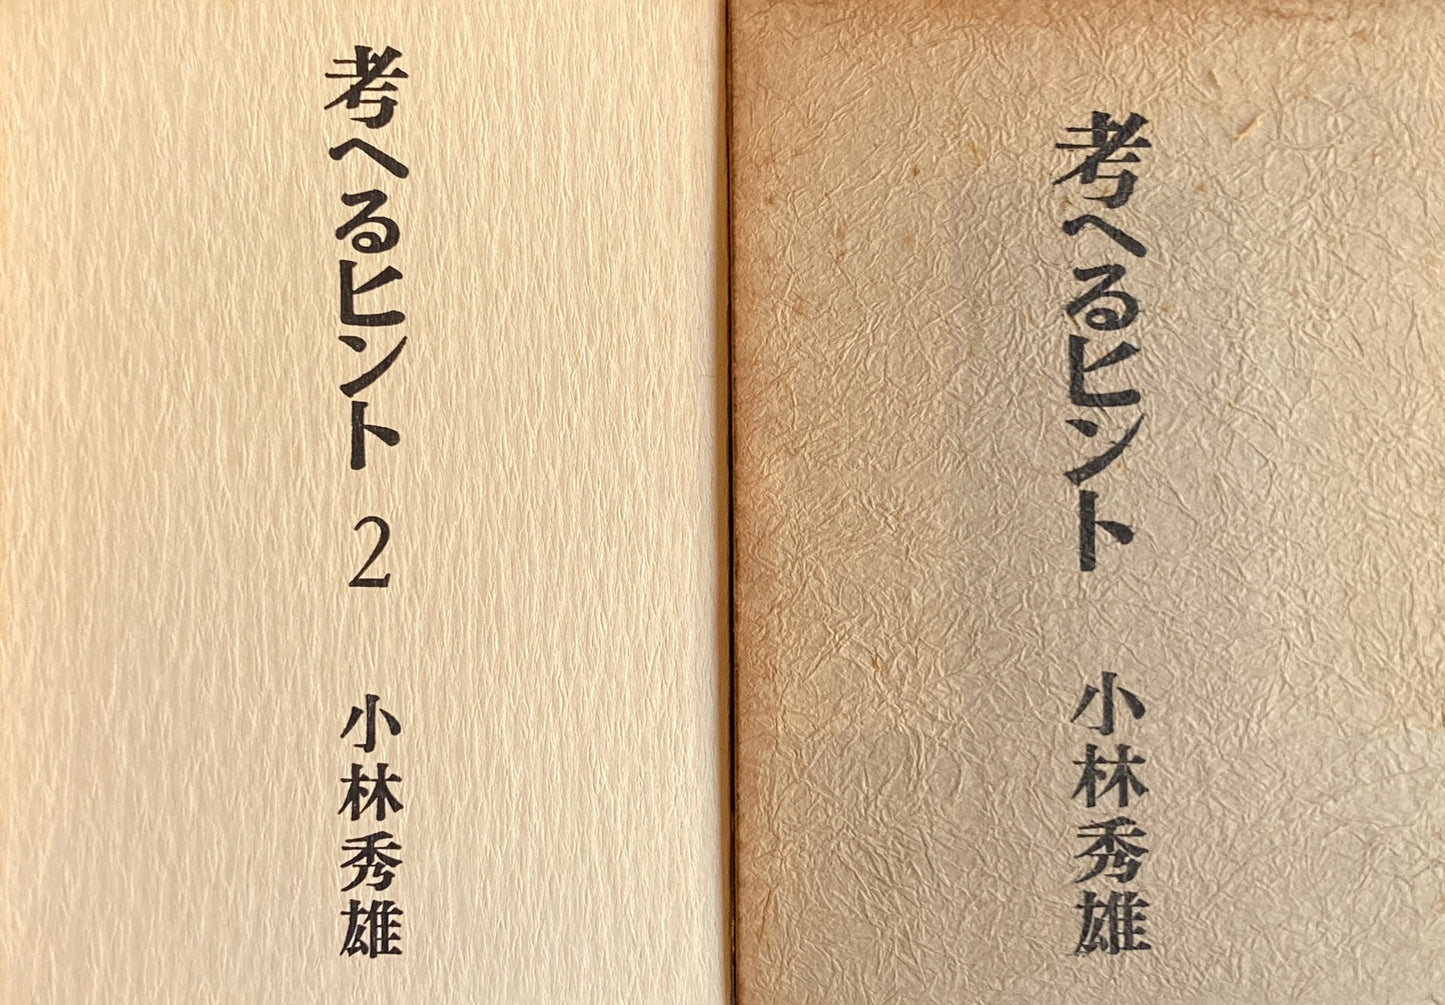 考へるヒント
小林秀雄
考へるヒント 2
小林秀雄